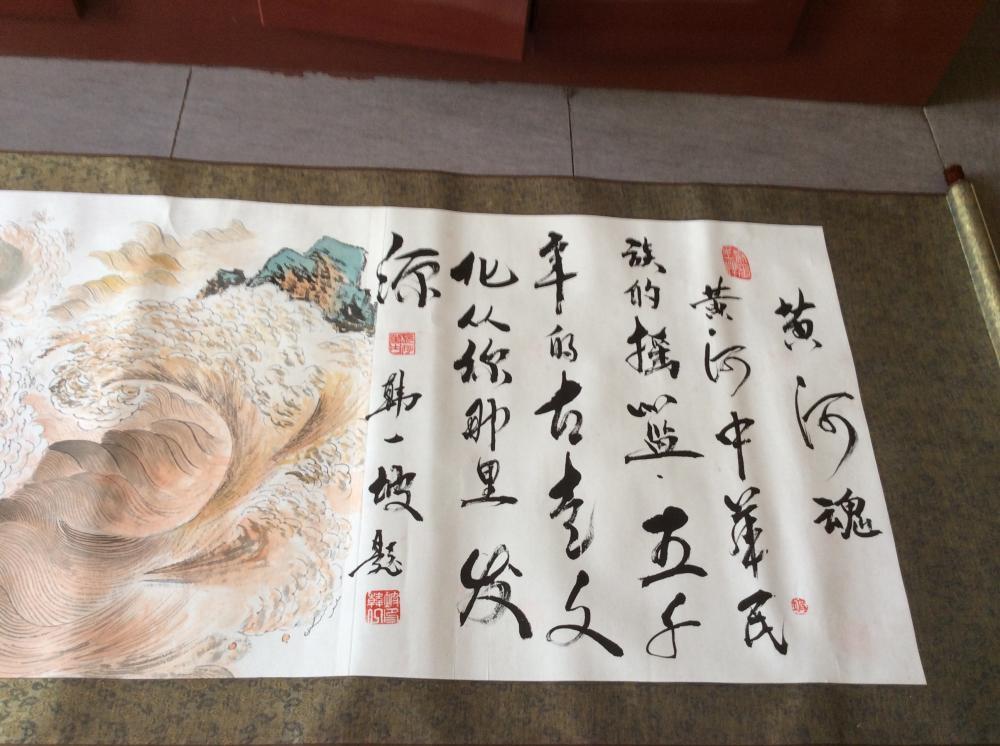 黄河魂
黄河中華民
族的摇篮.五千
年的古老文
化从你那里发
源
韩一坡题